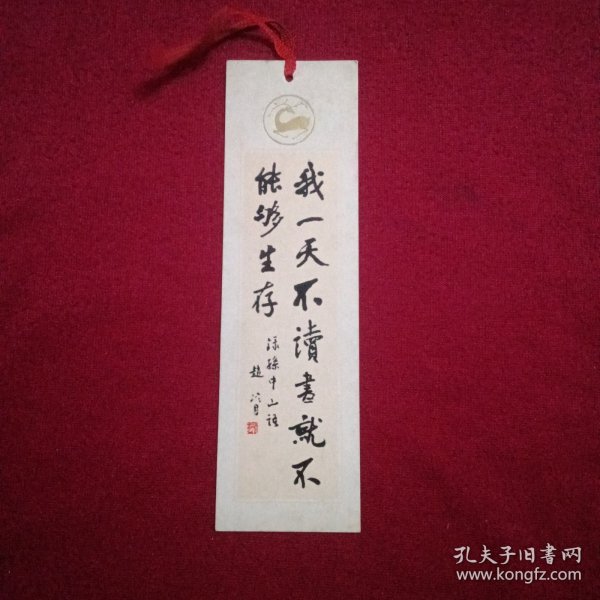 我一天不讀書就不
能够生存
錄孫中山語
趙冷月
孔夫子旧书网
www.kongfz.com